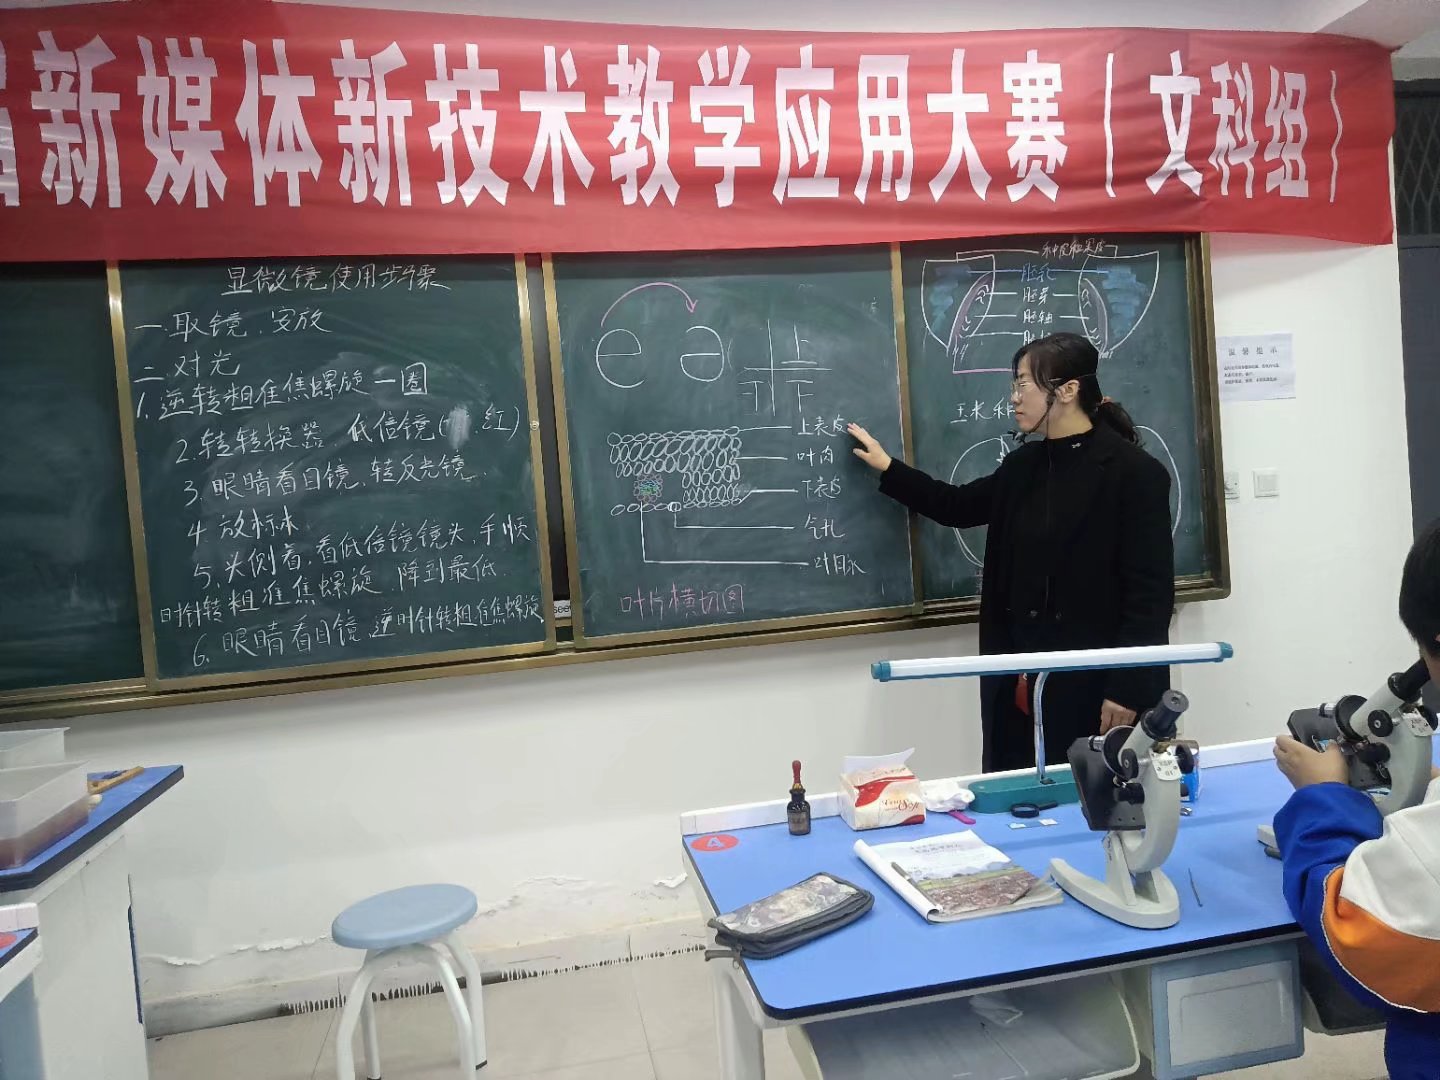 届新媒体新技术教学应用大赛（文科组）
显微镜使用步骤
一.取镜.安放
二.对光
1.逆转粗准焦螺旋一圈
2.转转换器.低倍镜( .红)
3.眼睛看目镜.转反光镜.
4.放标本
5.头侧着,看低倍镜镜头,手顺
时针转粗准焦螺旋.降到最低.
6.眼睛看目镜,逆时针转粗准焦螺旋
e
上
下 下
上表皮
叶肉
下表皮
气孔
叶脉
叶片横切图
胚乳
胚芽
胚轴
玉米种
温馨提示
4